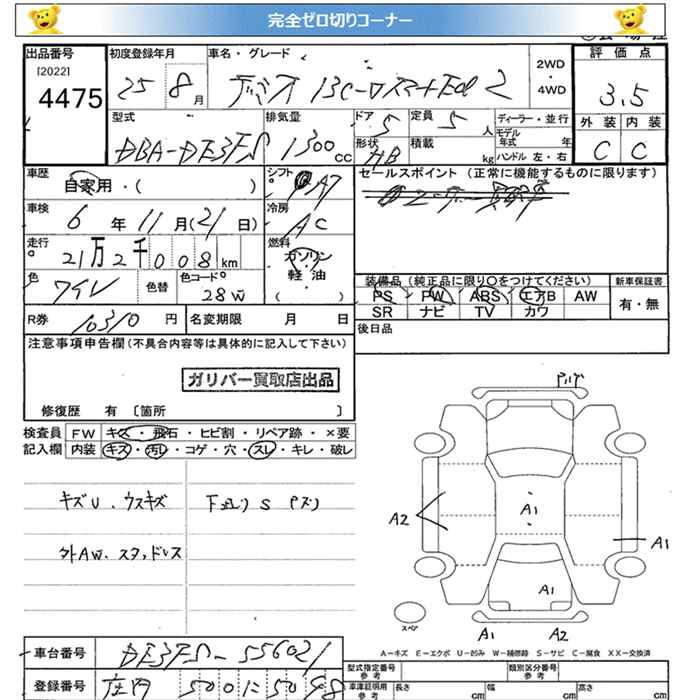 完全ゼロ切りコーナー
出品番号 初度登録年月 車名・グレード 評価点
[2022]
4475 25 8月 デミオ 13C- 2 2WD・4WD 3.5
型式 排気量 ドア 定員 ディーラー・並行 外装 内装
DBA-DE3FS 1300cc 5 5人 モデル年式 年 C C
形状 HB 積載 kg ハンドル 左・右
車歴 自家用・( ) シフト A7 セールスポイント (正常に機能するものに限ります)
車検 6年11月(21日) 冷房 AC
走行 21万2千008km 燃料 ガソリン 軽油 ( )
色 ワイン 色替 色コード 28W
装備品 (純正品に限り○をつけてください) 新車保証書
PS PW ABS エアB AW 有・無
SR ナビ TV カワ
R券 10310円 名変期限 月 日 後日品
注意事項申告欄 (不具合内容等は具体的に記入して下さい)
ガリバー買取店出品
修復歴 有 〔箇所 〕
検査員 FW キズ・飛石・ヒビ割・リペア跡・×要
記入欄 内装 キズ・汚レ・コゲ・穴・スレ・キレ・破レ
キズU.ウスキズ
外AW.スタッドレス
A1
A2
A1
A1
スペア
A1 A2
A-キズ E-エクボ U-凹み W-補修跡 S-サビ C-腐食 XX-交換済
車台番号 DE3FS-556021
型式指定番号 参考 類別区分番号 参考
登録番号 500
車庫証明用 参考 長さ cm 幅 cm 高さ cm